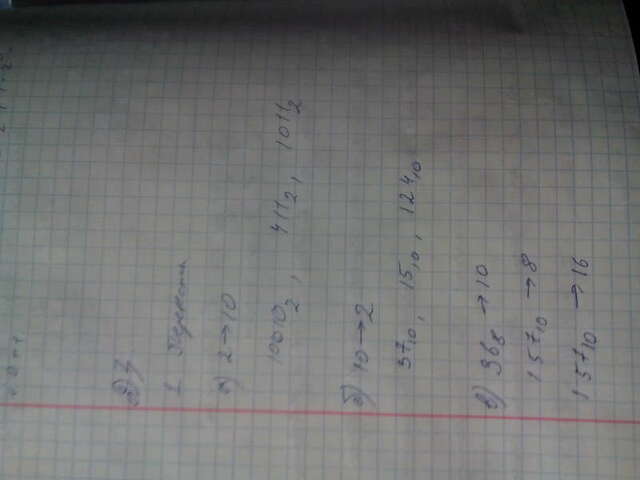 Д/З
1. Перевести
а) 2 → 10
10010₂, 111₂, 1011₂
б) 10 → 2
37₁₀, 15₁₀, 124₁₀
в) 36₈ → 10
157₁₀ → 8
157₁₀ → 16